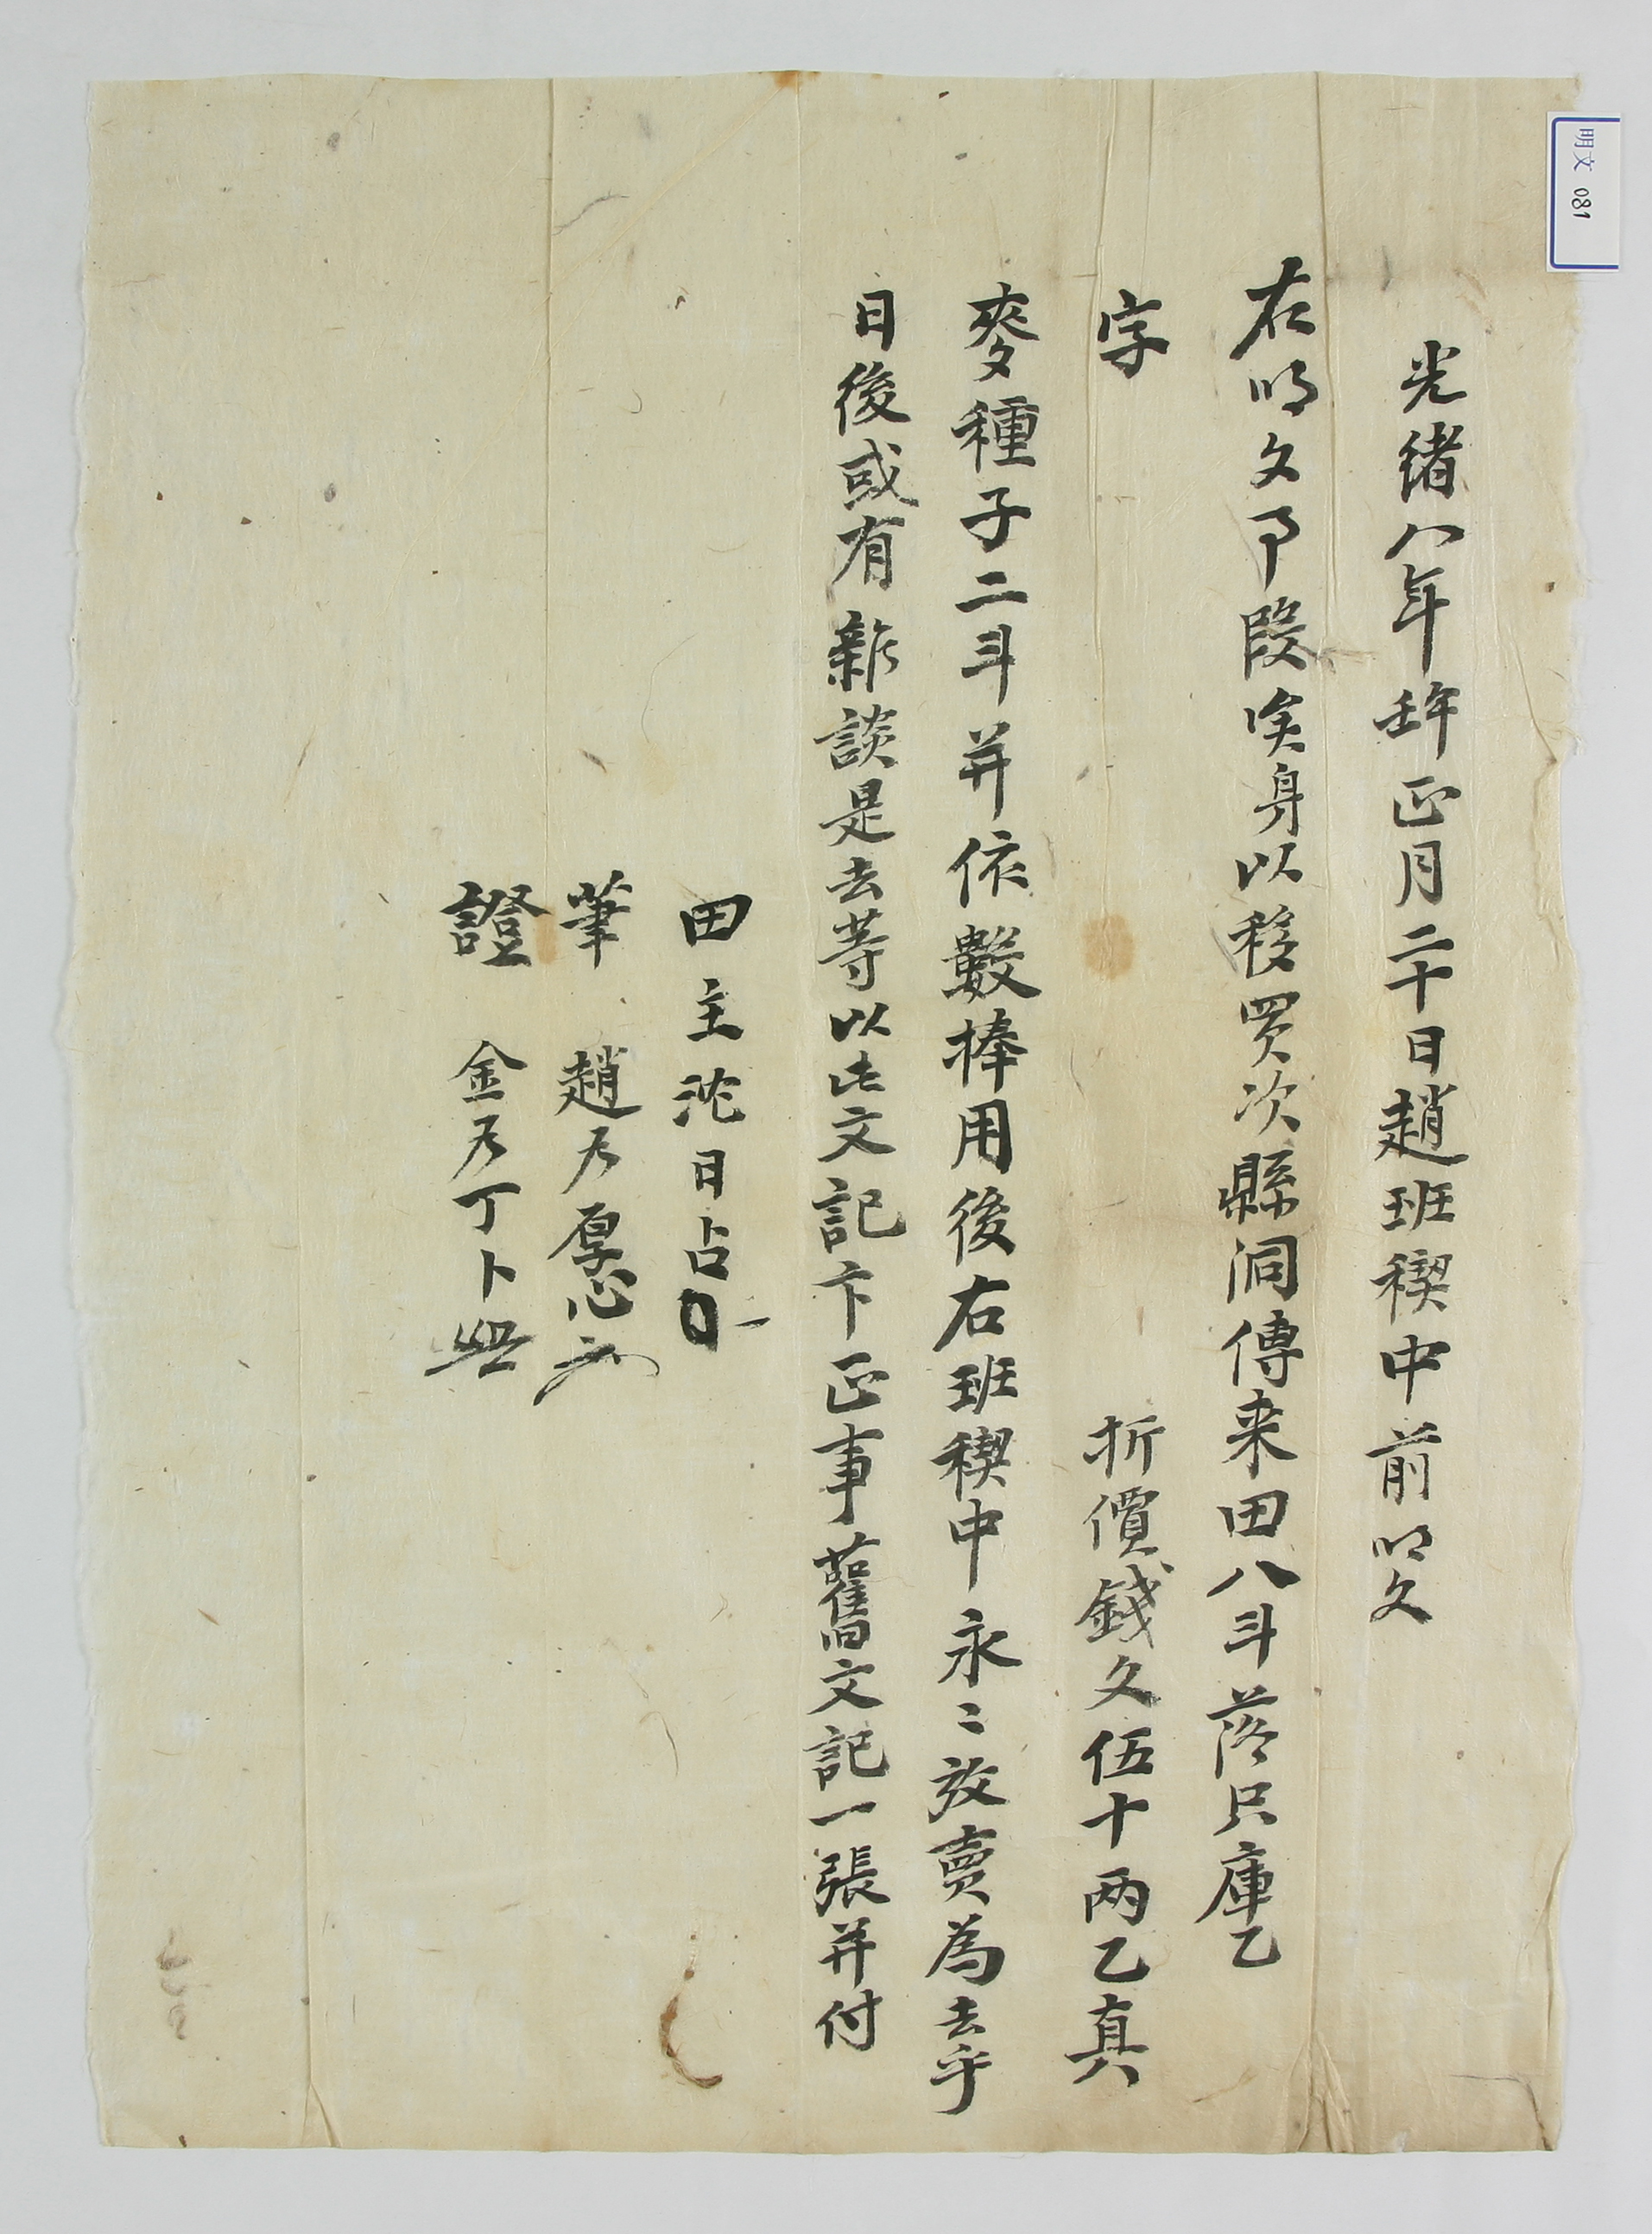 光緒八年壬午正月二十日趙班稧中前明文
右明文事段矣身以移買次縣洞傳来田八斗落只庫乙
字　折價錢文伍十両乙真
麥種子二斗并依數捧用後右班稧中永〻放賣為去乎
日後或有雜談是去等以此文記卞正事舊文記一張并付
田主沈日占
筆　趙乃厚
證　金乃丁卜
明文 081